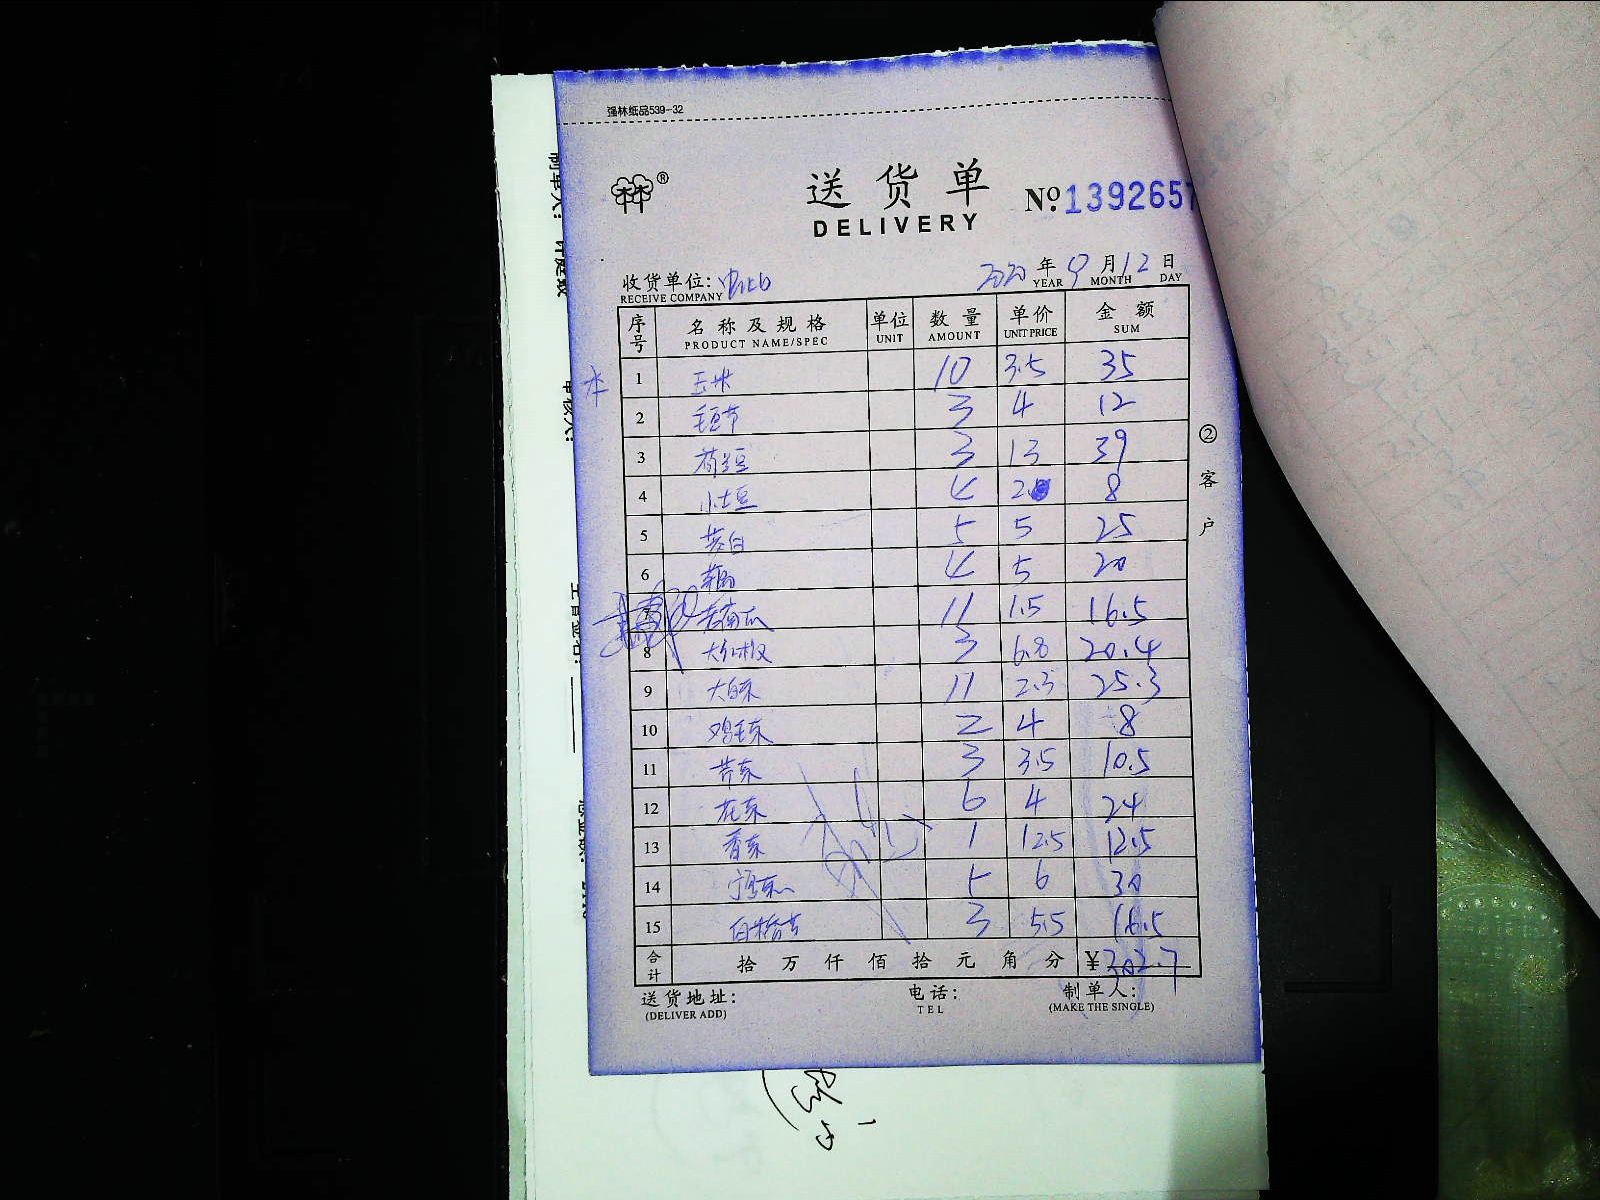 强林纸品539-32
送货单
DELIVERY
№ 1392657
收货单位:
RECEIVE COMPANY
2020 年 9 月 12 日
YEAR MONTH DAY
序号 名称及规格 单位 数量 单价 金额
PRODUCT NAME/SPEC UNIT AMOUNT UNIT PRICE SUM
本
1 玉米 10 3.5 35
2 毛豆节 3 4 12
3 荷兰豆 3 13 39
4 小土豆 4 2 8
5 茭白 5 5 25
6 4 5 20
7 老南瓜 11 1.5 16.5
8 大红椒 3 6.8 20.4
9 大白菜 11 2.3 25.3
10 鸡毛菜 2 4 8
11 苦菜 3 3.5 10.5
12 花菜 6 4 24
13 香菜 1 12.5 12.5
14 5 6 30
15 3 5.5 16.5
合计 拾 万 仟 佰 拾 元 角 分 ¥302.7
送货地址: 电话: 制单人:
(DELIVER ADD) TEL (MAKE THE SINGLE)
②客户